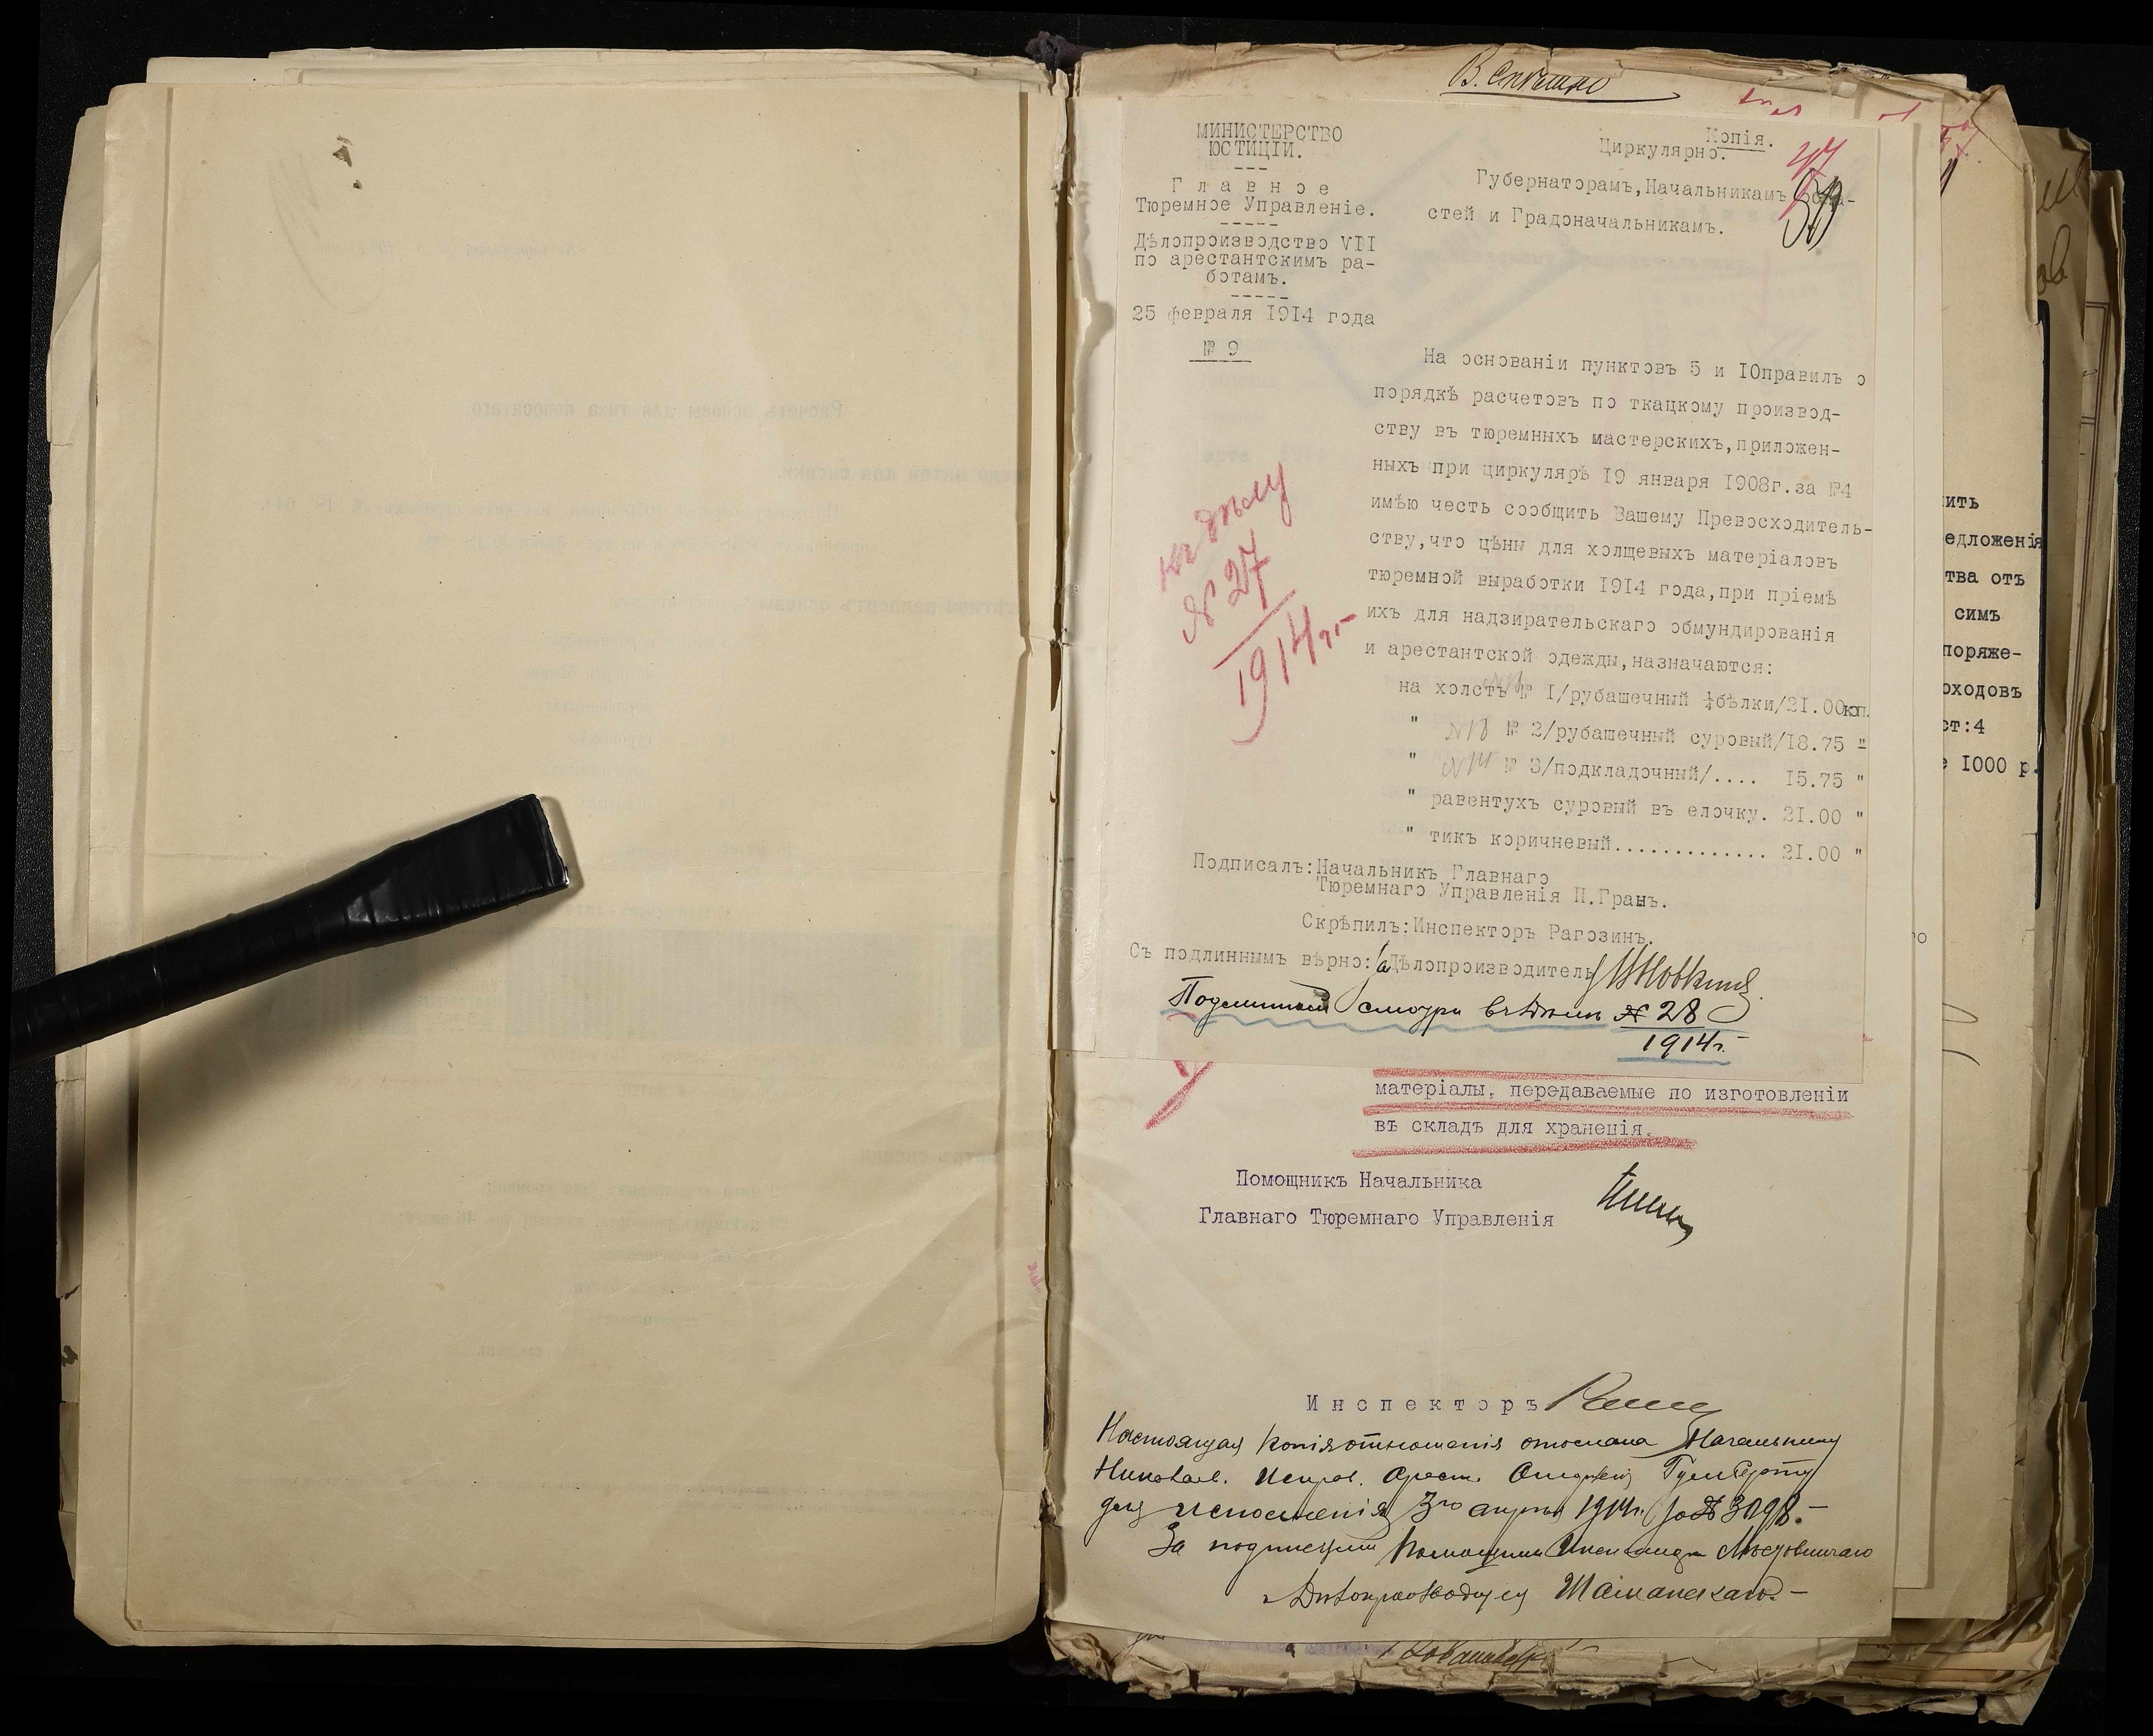 В. Спѣшно
Копія.
МИНИСТЕРСТВО
ЮСТИЦІИ.
Циркулярно.
47
Главное
Тюремное Управленіе.
Губернаторамъ, Начальникамъ Обла-
стей и Градоначальникамъ.
Дѣлопроизводство VII
по арестантскимъ ра-
ботамъ.
25 февраля 1914 года
№ 9
На основаніи пунктовъ 5 и 10правилъ о
порядкѣ расчетовъ по ткацкому производ-
ству въ тюремныхъ мастерскихъ, приложен-
ныхъ при циркулярѣ 19 января 1908г. за №4
имѣю честь сообщить Вашему Превосходитель-
ству, что цѣны для холщевыхъ матеріаловъ
тюремной выработки 1914 года, при пріемѣ
ихъ для надзирательскаго обмундированія
и арестантской одежды, назначаются:
на холстъ № 1/рубашечный ‡бѣлки/21.00коп.
" № 2/рубашечный суровый/18.75 "
" № 3/подкладочный/.... 15.75 "
" равентухъ суровый въ елочку. 21.00 "
" тикъ коричневый............. 21.00 "
къ дѣлу
№ 27
1914г.
Подписалъ: Начальникъ Главнаго
Тюремнаго Управленія П. Гранъ.
Скрѣпилъ: Инспекторъ Рагозинъ.
Съ подлиннымъ вѣрно: За Дѣлопроизводитель
Подлинный смотри въ дѣлѣ № 28
1914г.
матеріалы, передаваемые по изготовленіи
въ складъ для храненія.
Помощникъ Начальника
Главнаго Тюремнаго Управленія
Инспекторъ
Настоящая копія отношенія отослана Начальнику
Николаев. Исправ. Арест. Отдѣленія
для исполненія 3го апрѣля 1914г. за № 3098.
За подписью Помощника Инспектора
Дѣлопроизводителя Шаманскаго
ить
едложенія
тва отъ
симъ
поряже-
оходовъ
ст:4
е 1000 р.